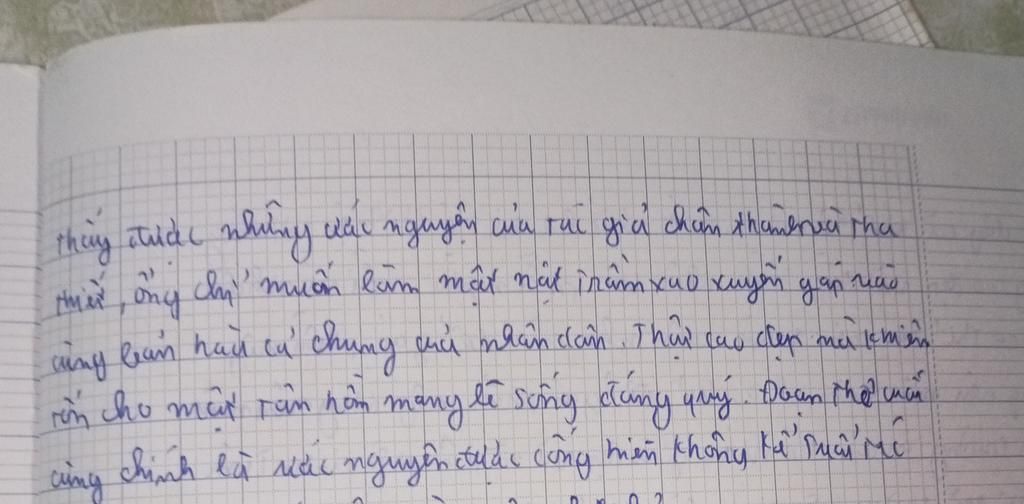 thấy được những ước nguyện của tác giả chân thành và tha
thiết, ông chỉ muốn làm một nốt trầm xao xuyến gắn vào
cùng bản hòa ca chung của nhân dân. Thật cao đẹp mà khiêm
tốn cho một tâm hồn mang lẽ sống đáng quý. Đoạn thơ cuối
cùng chính là ước nguyện được cống hiến không kể tuổi tác